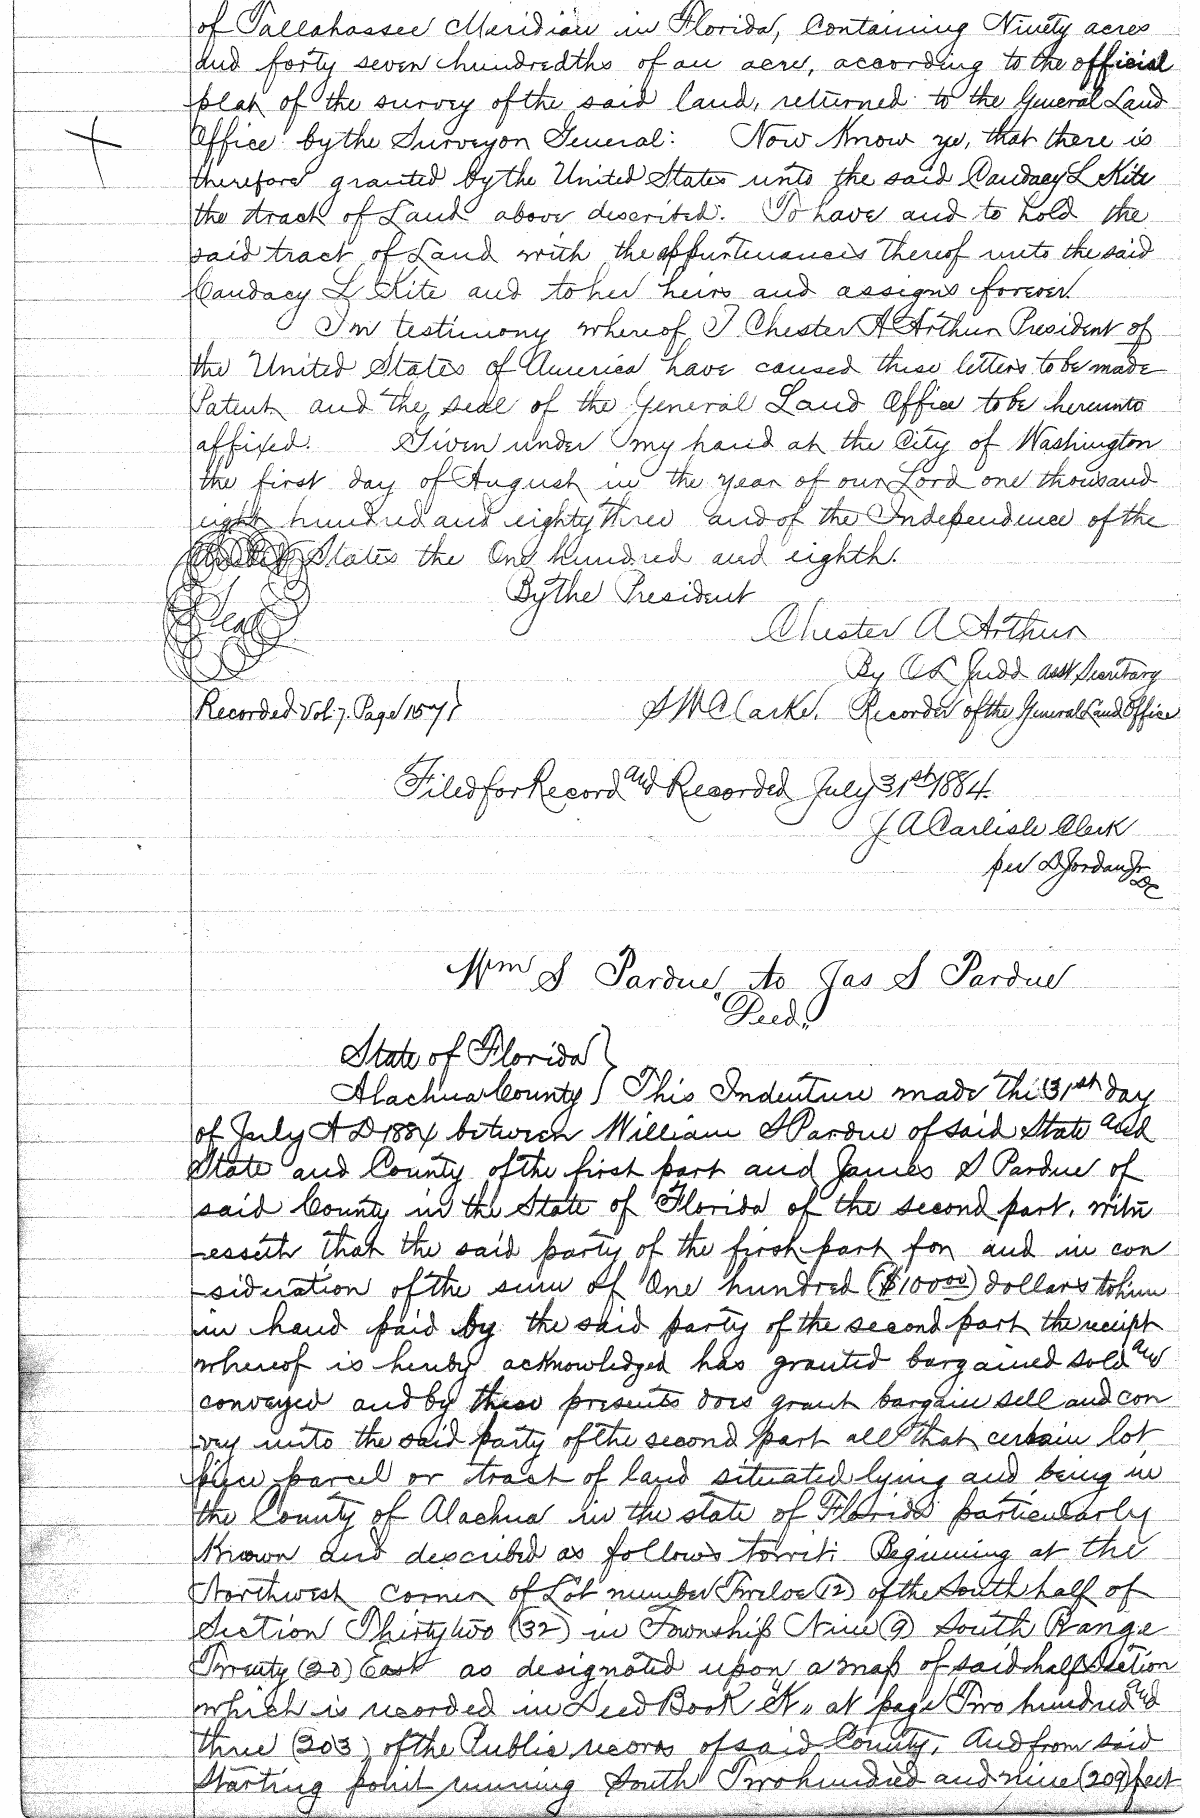 of Tallahassee Meridian in Florida, Containing Ninety acres
and forty seven hundredths of an acre, according to the official
plat of the survey of the said land, returned to the General Land
Office by the Surveyor General: Now Know ye, that there is
therefore granted by the United States unto the said Candacy L Kite
the tract of Land above described. To have and to hold the
said tract of Land with the appurtenances thereof unto the said
Candacy L Kite and to her heirs and assigns forever.
In testimony whereof I Chester A Arthur President of
the United States of America have caused these letters to be made
Patent and the seal of the General Land Office to be hereunto
affixed. Given under my hand at the City of Washington
the first day of August in the year of our Lord one thousand
eight hundred and eighty three and of the Independence of the
United States the One hundred and eighth.
By the President
Seal
Chester A Arthur
By O L Judd asst Secretary
Recorded Vol. 7. Page 157} S W Clarke. Recorder of the General Land Office
Filed for Record and Recorded July 31st 1884.
J A Carlisle Clerk
per D Jordan Jr
DC
Wm S Pardue to Jas S Pardue
"Deed"
State of Florida }
Alachua County } This Indenture made the 31st day
of July A D 1884 between William S Pardue of said State and
State and County of the first part and James S Pardue of
said County in the State of Florida of the second part, witn
-esseth that the said party of the first part for and in con
-sideration of the sum of One hundred ($100 00) dollars to him
in hand paid by the said party of the second part the receipt
whereof is hereby acknowledged has granted bargained sold and
conveyed and by these presents does grant bargain sell and con
-vey unto the said party of the second part all that certain lot
piece parcel or tract of land situated lying and being in
the County of Alachua in the state of Florida particularly
Known and described as follows towit: Beginning at the
Northwest corner of Lot number Twelve (12) of the South half of
Section Thirty two (32) in Township Nine (9) South Range
Twenty (20) East as designated upon a map of said half Section
which is recorded in Deed Book "K" at page Two hundred and
three (203) of the Public records of said County, And from said
starting point running South Two hundred and nine (209) feet